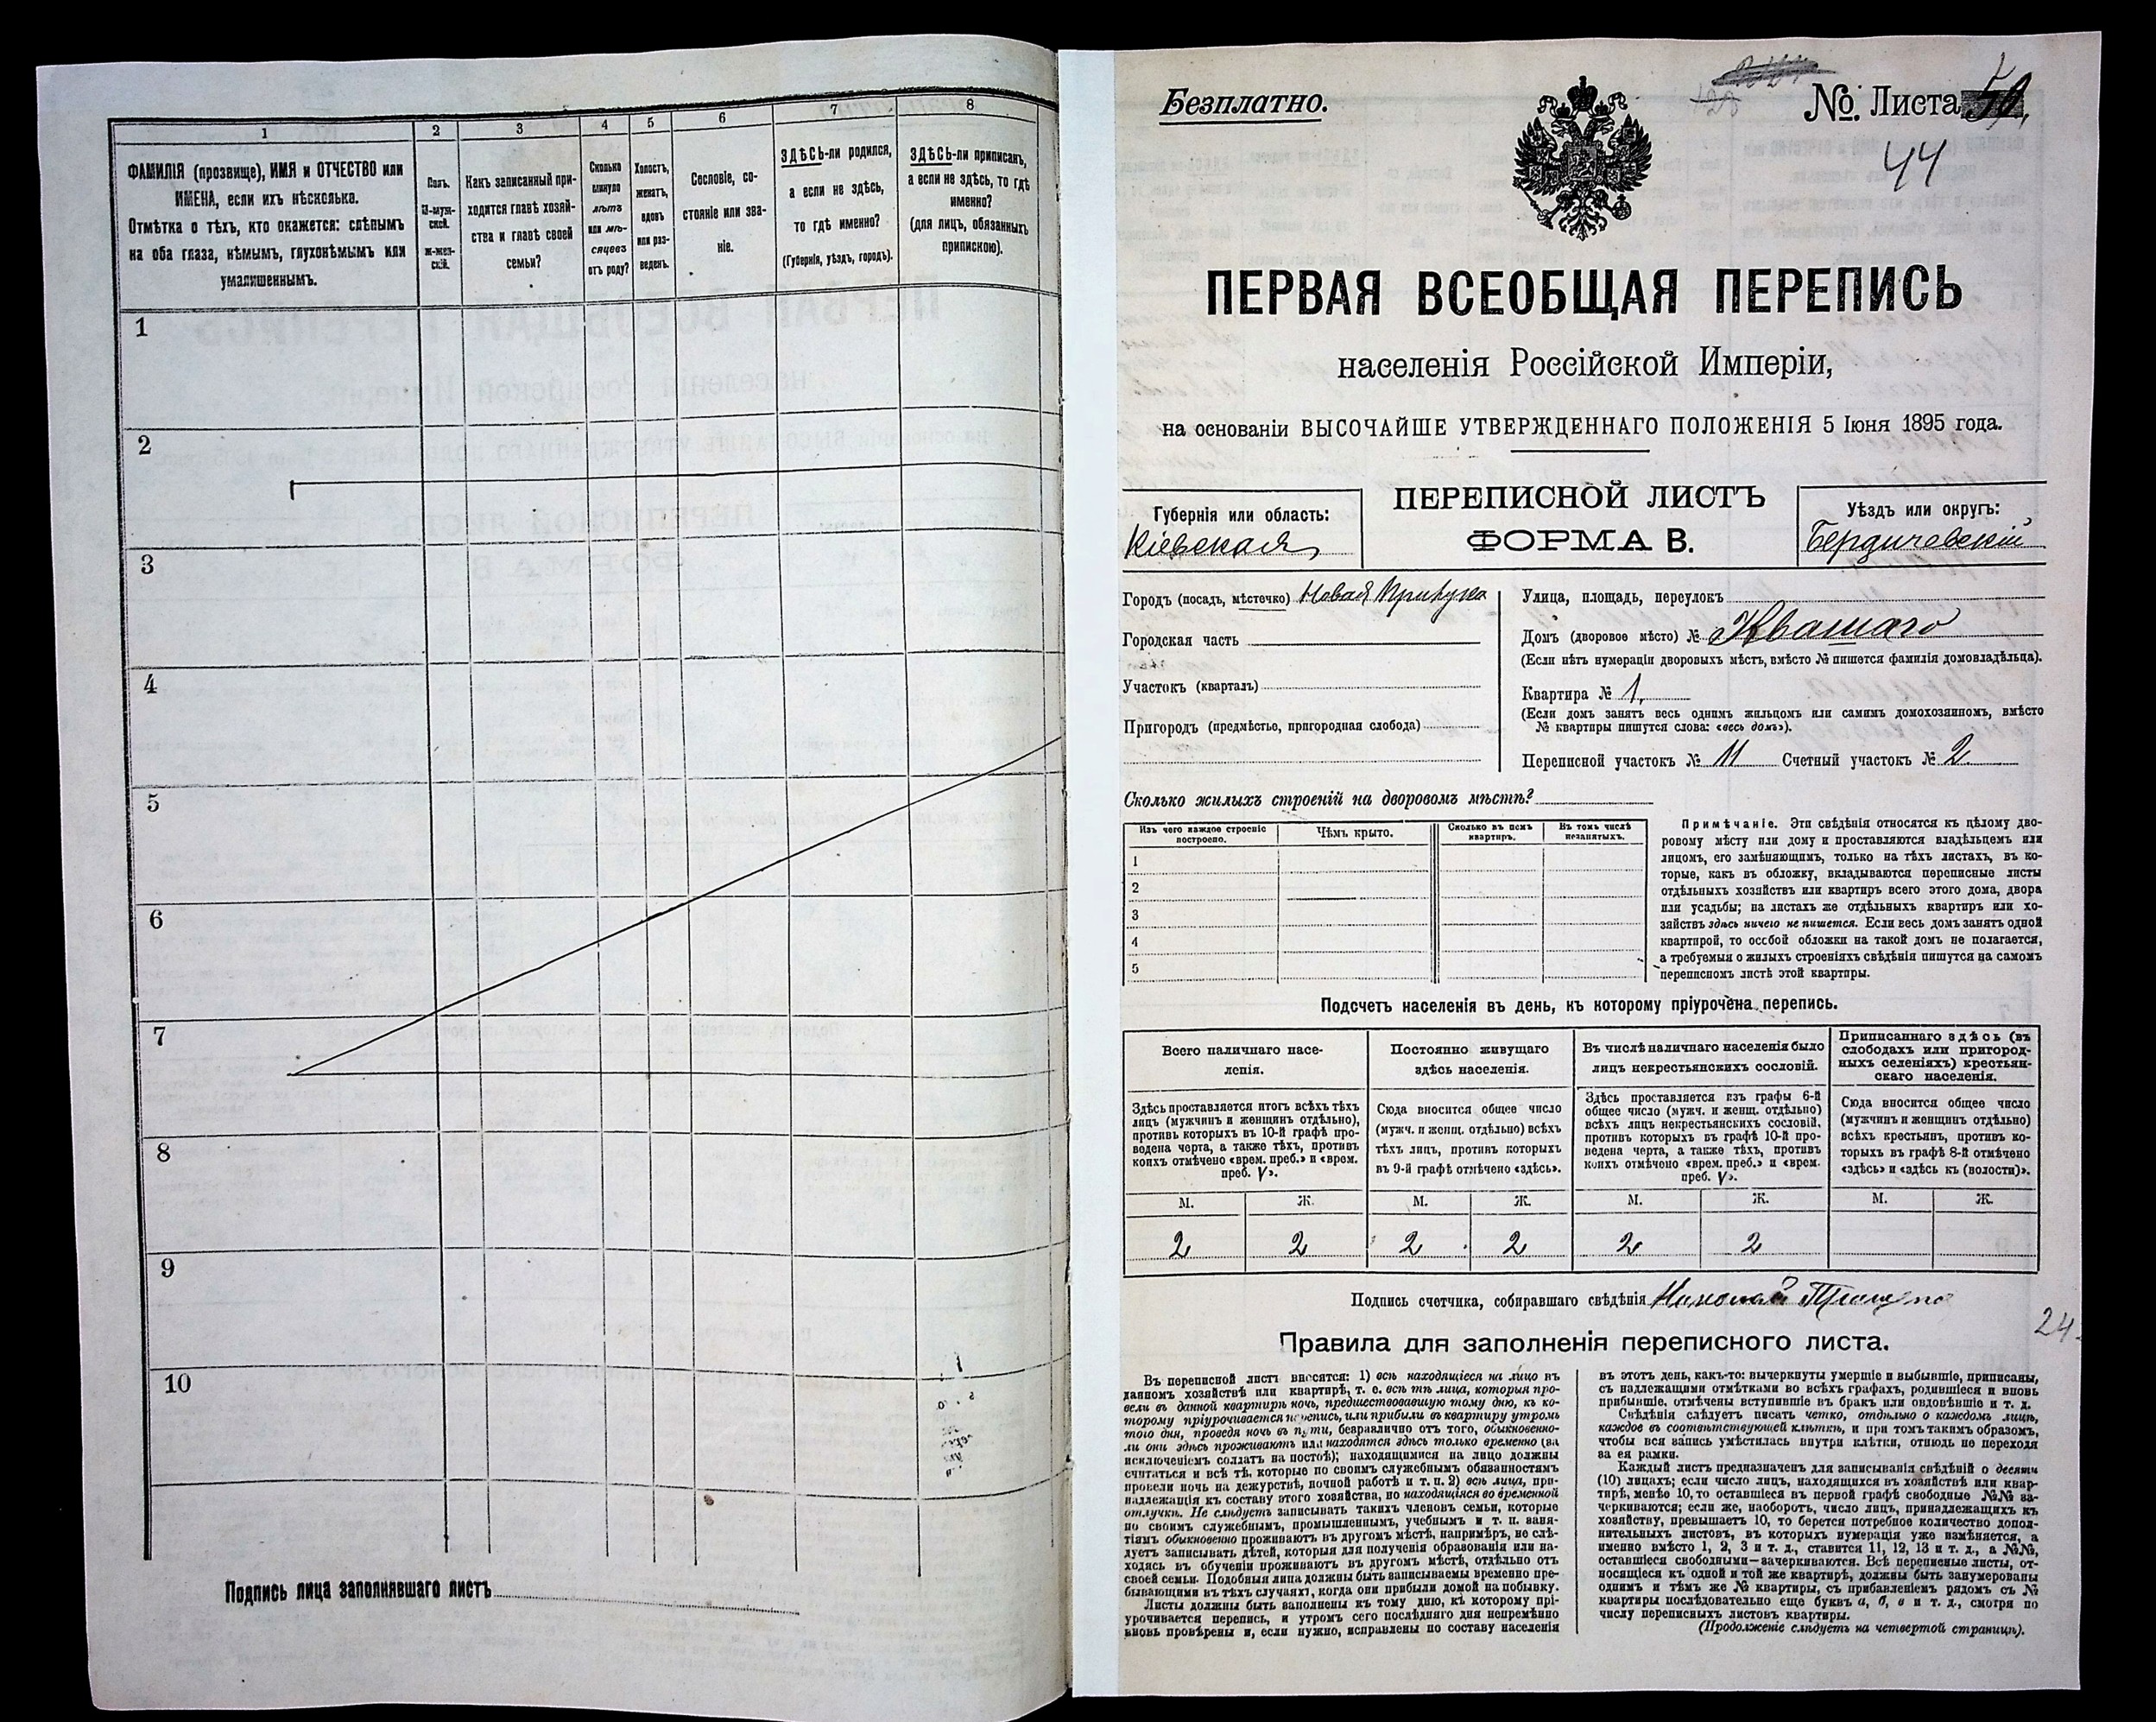 1
2
3
4
5
6
7
8
ФАМИЛІЯ (прозвище), ИМЯ и ОТЧЕСТВО или
ИМЕНА, если ихъ нѣсколько.
Отмѣтка о тѣхъ, кто окажется: слѣпымъ
на оба глаза, нѣмымъ, глухонѣмымъ или
умалишеннымъ.
Полъ.
М-муж-
ской.
ж-жен-
скій.
Какъ записанный при-
ходится главѣ хозяй-
ства и главѣ своей
семьи?
Сколько
минуло
лѣтъ
или мѣ-
сяцевъ
отъ роду?
Холостъ,
женатъ,
вдовъ
или раз-
веденъ.
Сословіе, со-
стояніе или зва-
ніе.
ЗДѢСЬ-ли родился,
а если не здѣсь,
то гдѣ именно?
(Губернія, уѣздъ, городъ).
ЗДѢСЬ-ли приписанъ,
а если не здѣсь, то гдѣ
именно?
(для лицъ, обязанныхъ
припискою).
1
2
3
4
5
6
7
8
9
10
Подпись лица заполнявшаго листъ
Безплатно.
№ Листа
44
ПЕРВАЯ ВСЕОБЩАЯ ПЕРЕПИСЬ
населенія Россійской Имперіи,
на основаніи ВЫСОЧАЙШЕ УТВЕРЖДЕННАГО ПОЛОЖЕНІЯ 5 Іюня 1895 года.
Губернія или область:
Кіевская
ПЕРЕПИСНОЙ ЛИСТЪ
ФОРМА В.
Уѣздъ или округъ:
Бердичевскій
Городъ (посадъ, мѣстечко) Новая Прилука
Городская часть
Участокъ (кварталъ)
Пригородъ (предмѣстье, пригородная слобода)
Улица, площадь, переулокъ
Домъ (дворовое мѣсто) №
(Если нѣтъ нумераціи дворовыхъ мѣстъ, вмѣсто № пишется фамилія домовладѣльца).
Квартира № 1,
(Если домъ занятъ весь однимъ жильцомъ или самимъ домохозяиномъ, вмѣсто
№ квартиры пишутся слова: «весь домъ»).
Переписной участокъ № 11 Счетный участокъ № 2
Сколько жилыхъ строеній на дворовомъ мѣстѣ?
Изъ чего каждое строеніе
построено.
Чѣмъ крыто.
Сколько въ немъ
квартиръ.
Въ томъ числѣ
незанятыхъ.
1
2
3
4
5
Примѣчаніе. Эти свѣдѣнія относятся къ цѣлому дво-
ровому мѣсту или дому и проставляются владѣльцемъ или
лицомъ, его замѣняющимъ, только на тѣхъ листахъ, въ ко-
торые, какъ въ обложку, вкладываются переписные листы
отдѣльныхъ хозяйствъ или квартиръ всего этого дома, двора
или усадьбы; на листахъ же отдѣльныхъ квартиръ или хо-
зяйствъ здѣсь ничего не пишется. Если весь домъ занятъ одной
квартирой, то особой обложки на такой домъ не полагается,
а требуемыя о жилыхъ строеніяхъ свѣдѣнія пишутся на самомъ
переписномъ листѣ этой квартиры.
Подсчетъ населенія въ день, къ которому пріурочена перепись.
Всего наличнаго насе-
ленія.
Постоянно живущаго
здѣсь населенія.
Въ числѣ наличнаго населенія было
лицъ некрестьянскихъ сословій.
Приписаннаго здѣсь (въ
слободахъ или пригород-
ныхъ селеніяхъ) крестьян-
скаго населенія.
Здѣсь проставляется итогъ всѣхъ тѣхъ
лицъ (мужчинъ и женщинъ отдѣльно),
противъ которыхъ въ 10-й графѣ про-
ведена черта, а также тѣхъ, противъ
коихъ отмѣчено «врем. преб.» и «врем.
преб. V».
Сюда вносится общее число
(мужч. и женщ. отдѣльно) всѣхъ
тѣхъ лицъ, противъ которыхъ
въ 9-й графѣ отмѣчено «здѣсь».
Здѣсь проставляется изъ графы 6-й
общее число (мужч. и женщ. отдѣльно)
всѣхъ лицъ некрестьянскихъ сословій,
противъ которыхъ въ графѣ 10-й про-
ведена черта, а также тѣхъ, противъ
коихъ отмѣчено «врем. преб.» и «врем.
преб. V».
Сюда вносится общее число
(мужчинъ и женщинъ отдѣльно)
всѣхъ крестьянъ, противъ ко-
торыхъ въ графѣ 8-й отмѣчено
«здѣсь» и «здѣсь къ (волости)».
М. Ж. М. Ж. М. Ж. М. Ж.
2 2 2 2 2 2
Подпись счетчика, собиравшаго свѣдѣнія Николай
24
Правила для заполненія переписного листа.
Въ переписной листъ вносятся: 1) всѣ находящіеся на лицо въ
данномъ хозяйствѣ или квартирѣ, т. е. всѣ тѣ лица, которыя про-
вели въ данной квартирѣ ночь, предшествовавшую тому дню, къ ко-
торому пріурочивается перепись, или прибыли въ квартиру утромъ
того дня, проведя ночь въ пути, безразлично отъ того, обыкновенно-
ли они здѣсь проживаютъ или находятся здѣсь только временно (за
исключеніемъ солдатъ на постоѣ); находящимися на лицо должны
считаться и всѣ тѣ, которые по своимъ служебнымъ обязанностямъ
провели ночь на дежурствѣ, ночной работѣ и т. п. 2) всѣ лица, при-
надлежащія къ составу этого хозяйства, но находящіяся во временной
отлучкѣ. Не слѣдуетъ записывать такихъ членовъ семьи, которые
по своимъ служебнымъ, промышленнымъ, учебнымъ и т. п. заня-
тіямъ обыкновенно проживаютъ въ другомъ мѣстѣ, напримѣръ, не слѣ-
дуетъ записывать дѣтей, которыя для полученія образованія или на-
ходясь въ обученіи проживаютъ въ другомъ мѣстѣ, отдѣльно отъ
своей семьи. Подобныя лица должны быть записываемы временно пре-
бывающими въ тѣхъ случаяхъ, когда они прибыли домой на побывку.
Листы должны быть заполнены къ тому дню, къ которому прі-
урочивается перепись, и утромъ сего послѣдняго дня непремѣнно
вновь провѣрены и, если нужно, исправлены по составу населенія
въ этотъ день, какъ-то: вычеркнуты умершіе и выбывшіе, приписаны,
съ надлежащими отмѣтками во всѣхъ графахъ, родившіеся и вновь
прибывшіе, отмѣчены вступившіе въ бракъ или овдовѣвшіе и т. д.
Свѣдѣнія слѣдуетъ писать четко, отдѣльно о каждомъ лицѣ,
каждое въ соотвѣтствующей клѣткѣ, и при томъ такимъ образомъ,
чтобы вся запись умѣстилась внутри клѣтки, отнюдь не переходя
за ея рамки.
Каждый листъ предназначенъ для записыванія свѣдѣній о десяти
(10) лицахъ; если число лицъ, находящихся въ хозяйствѣ или квар-
тирѣ, менѣе 10, то оставшіеся въ первой графѣ свободные №№ за-
черкиваются; если же, наоборотъ, число лицъ, принадлежащихъ къ
хозяйству, превышаетъ 10, то берется потребное количество допол-
нительныхъ листовъ, въ которыхъ нумерація уже измѣняется, а
именно вмѣсто 1, 2, 3 и т. д., ставится 11, 12, 13 и т. д., а №№,
оставшіеся свободными—зачеркиваются. Всѣ переписные листы, от-
носящіеся къ одной и той же квартирѣ, должны быть занумерованы
однимъ и тѣмъ же № квартиры, съ прибавленіемъ рядомъ съ №
квартиры послѣдовательно еще буквъ а, б, в и т. д., смотря по
числу переписныхъ листовъ квартиры.
(Продолженіе слѣдуетъ на четвертой страницѣ).